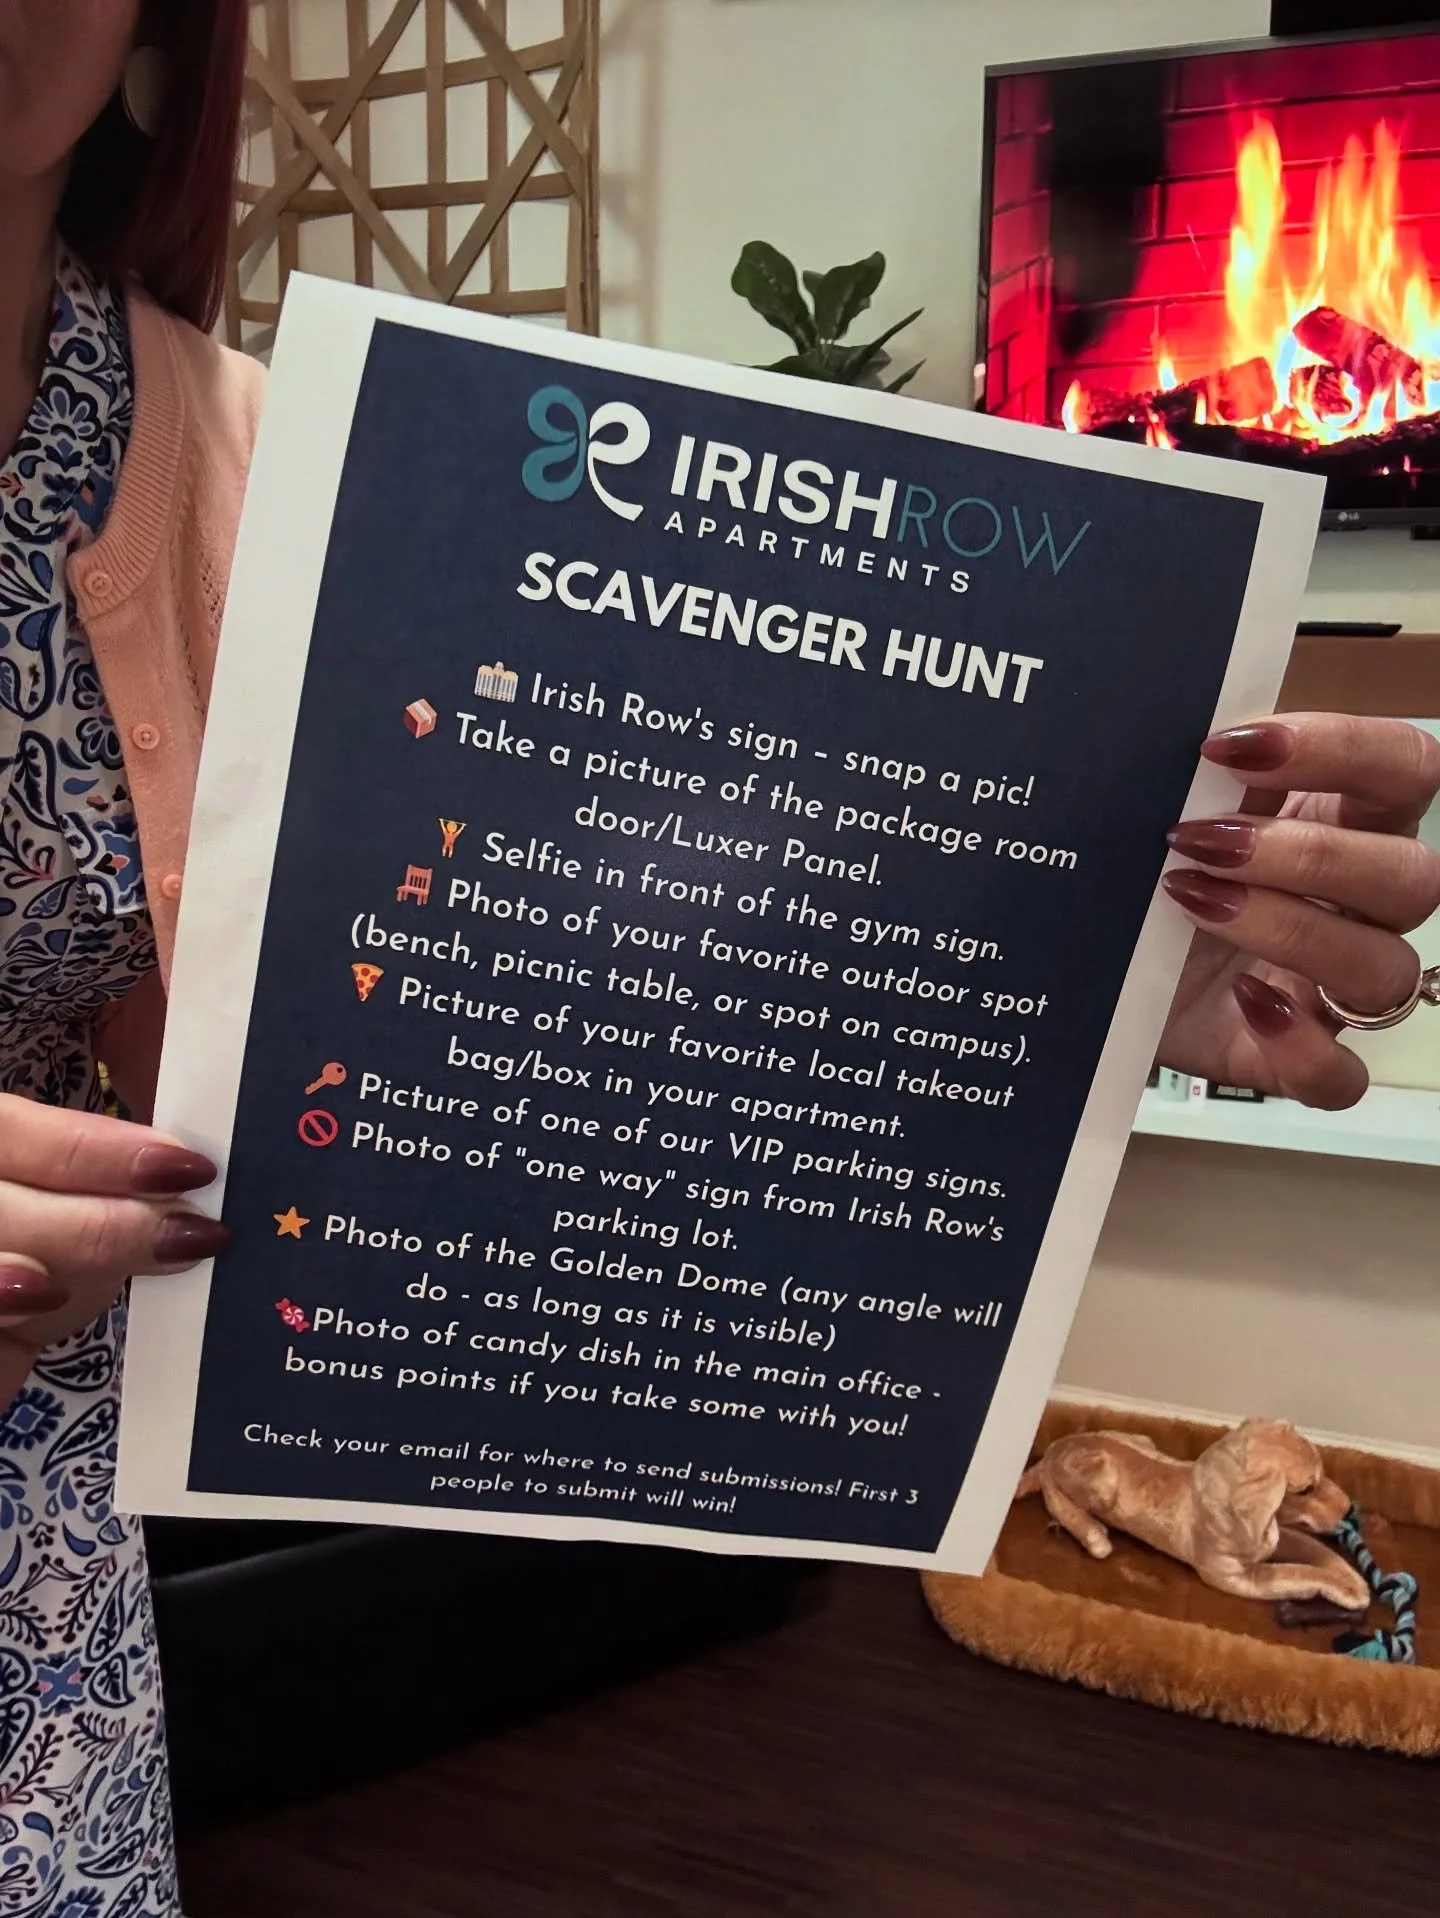 IRISHROW
APARTMENTS
SCAVENGER HUNT
Irish Row's sign - snap a pic!
Take a picture of the package room
door/Luxer Panel.
Selfie in front of the gym sign.
Photo of your favorite outdoor spot
(bench, picnic table, or spot on campus).
Picture of your favorite local takeout
bag/box in your apartment.
Picture of one of our VIP parking signs.
Photo of "one way" sign from Irish Row's
parking lot.
Photo of the Golden Dome (any angle will
do - as long as it is visible)
Photo of candy dish in the main office -
bonus points if you take some with you!
Check your email for where to send submissions! First 3
people to submit will win!
LG